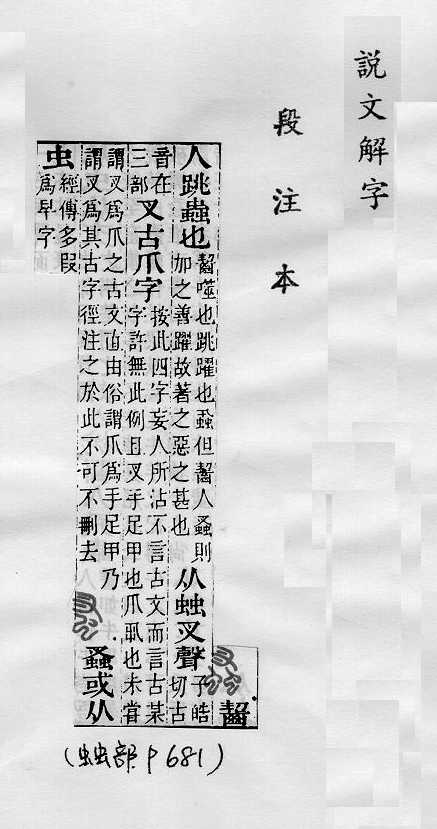 說文解字
段注本
齧
人跳蟲也
齧噬也跳躍也蝨但齧人蚤則
加之善躍故著之惡之甚也
从䖵㕚聲
子皓
切古
音在
三部
㕚古爪字
按此四字妄人所沾不言古文而言古某
字許無此例且㕚手足甲也爪丮也未嘗
謂㕚爲爪之古文直由俗謂爪爲手足甲乃
謂㕚爲其古字徑注之於此不可不刪去
蚤或从
虫
經傳多叚
爲早字
(䖵部 P 681)